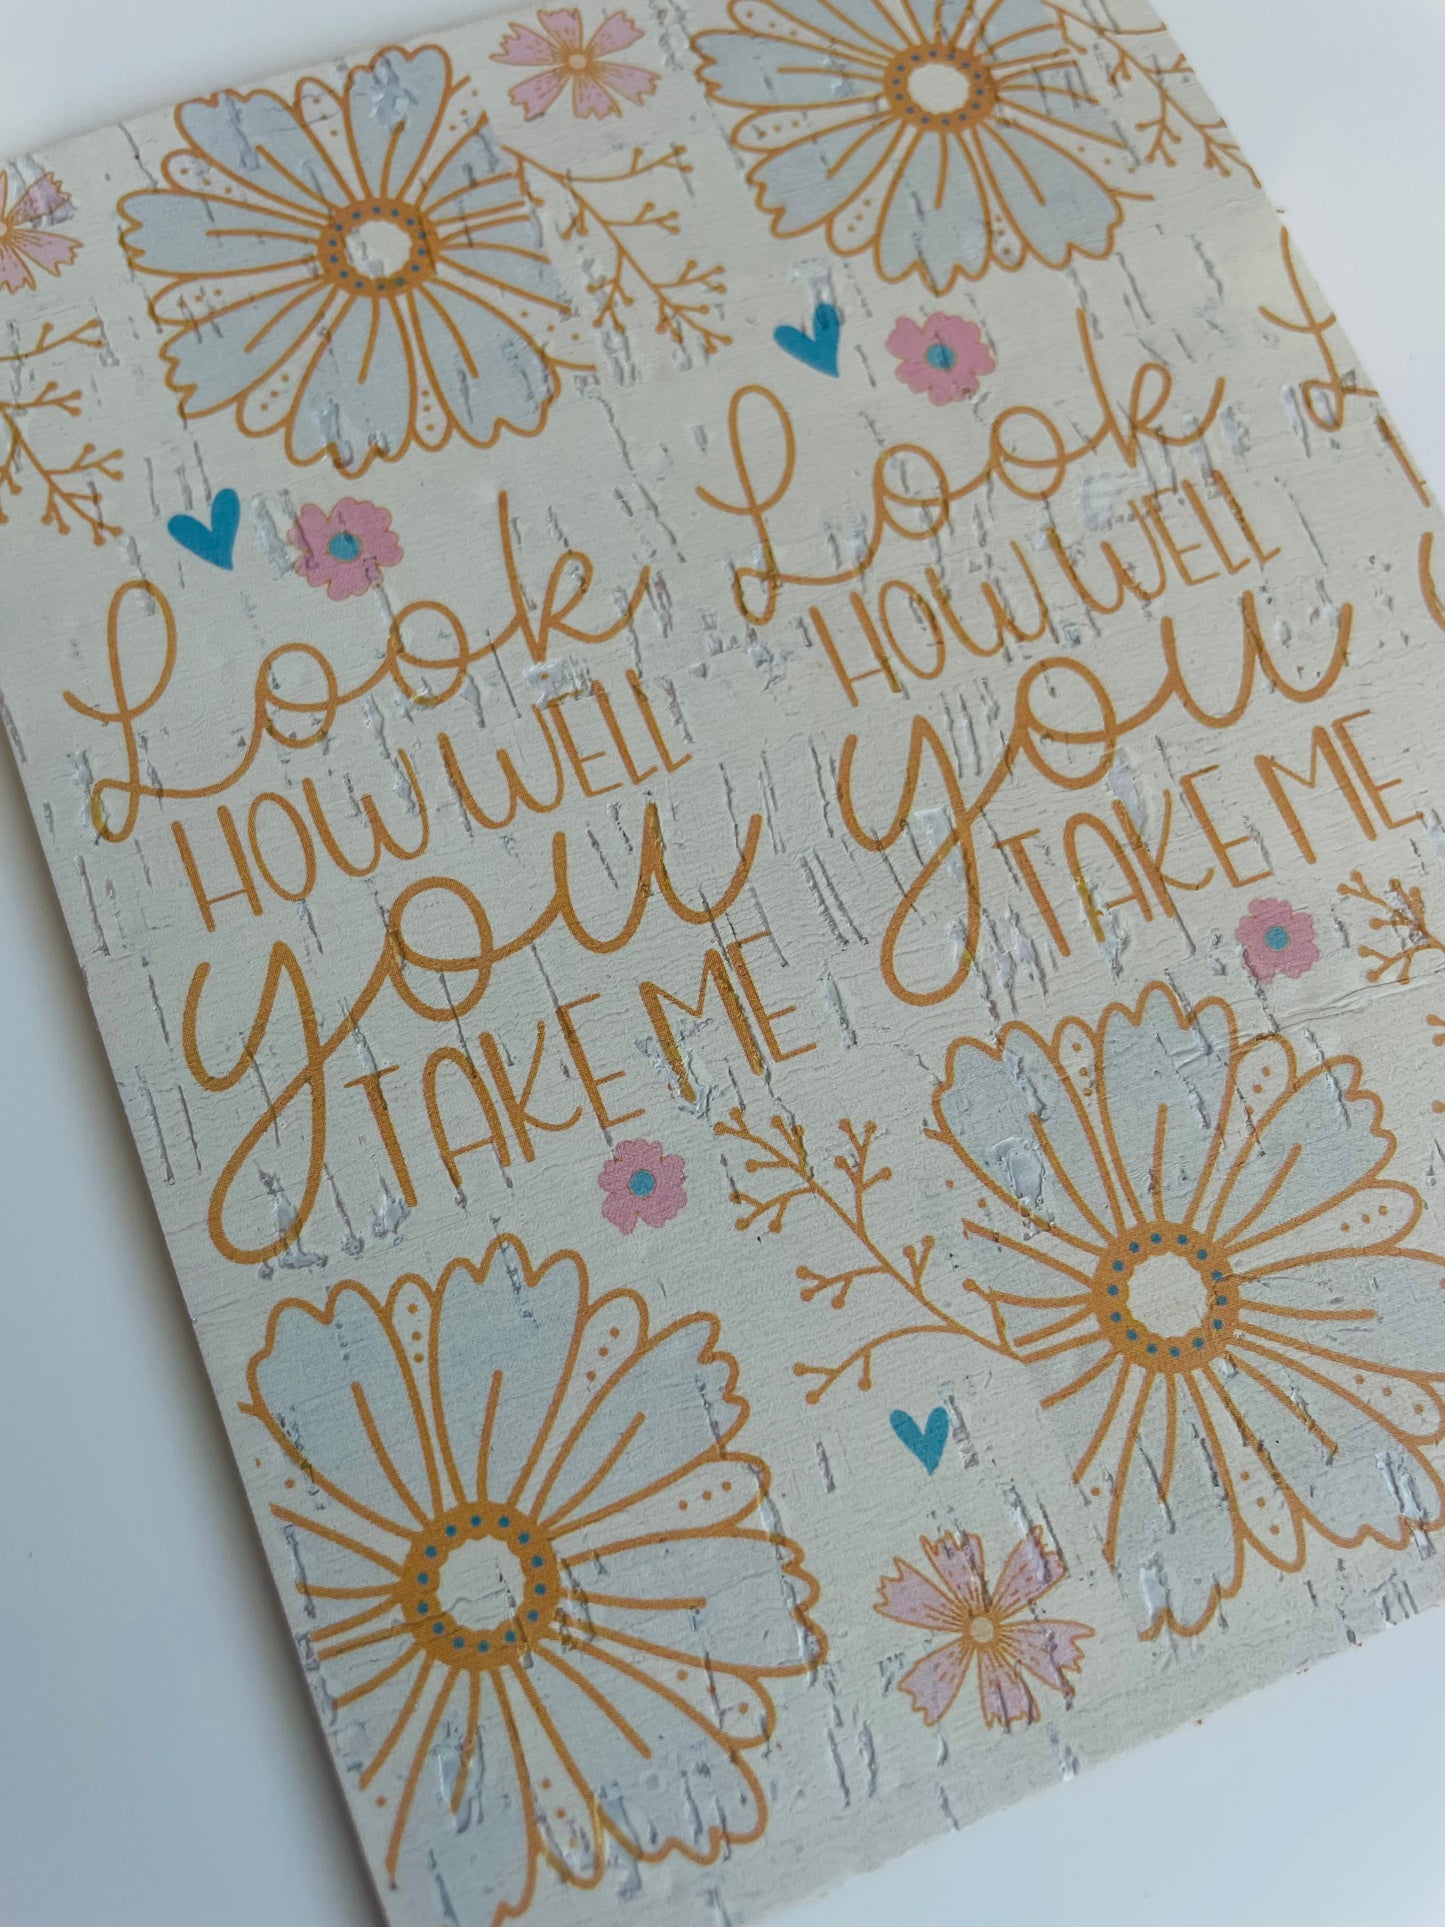 Look
HOW WELL
you
TAKE ME
Look
HOW WELL
you
TAKE ME
L